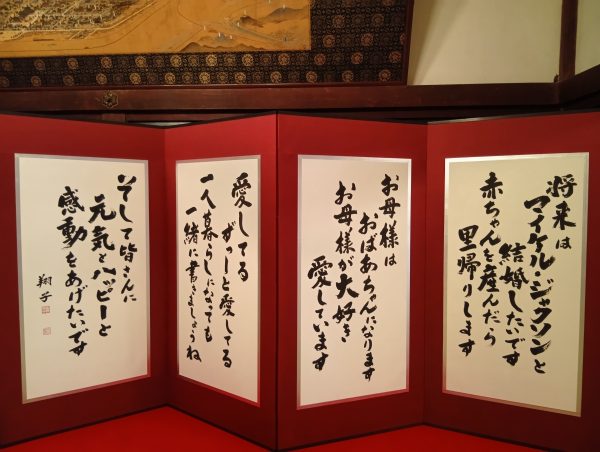 将来は
マイケル・ジャクソンと
結婚したいです
赤ちゃんを産んだら
里帰りします
お母様は
おばあちゃんになります
お母様が大好き
愛しています
愛してる
ずっーと愛してる
一人暮らしになっても
一緒に書きましょうね
そして皆さんに
元気とハッピーと
感動をあげたいです
翔子